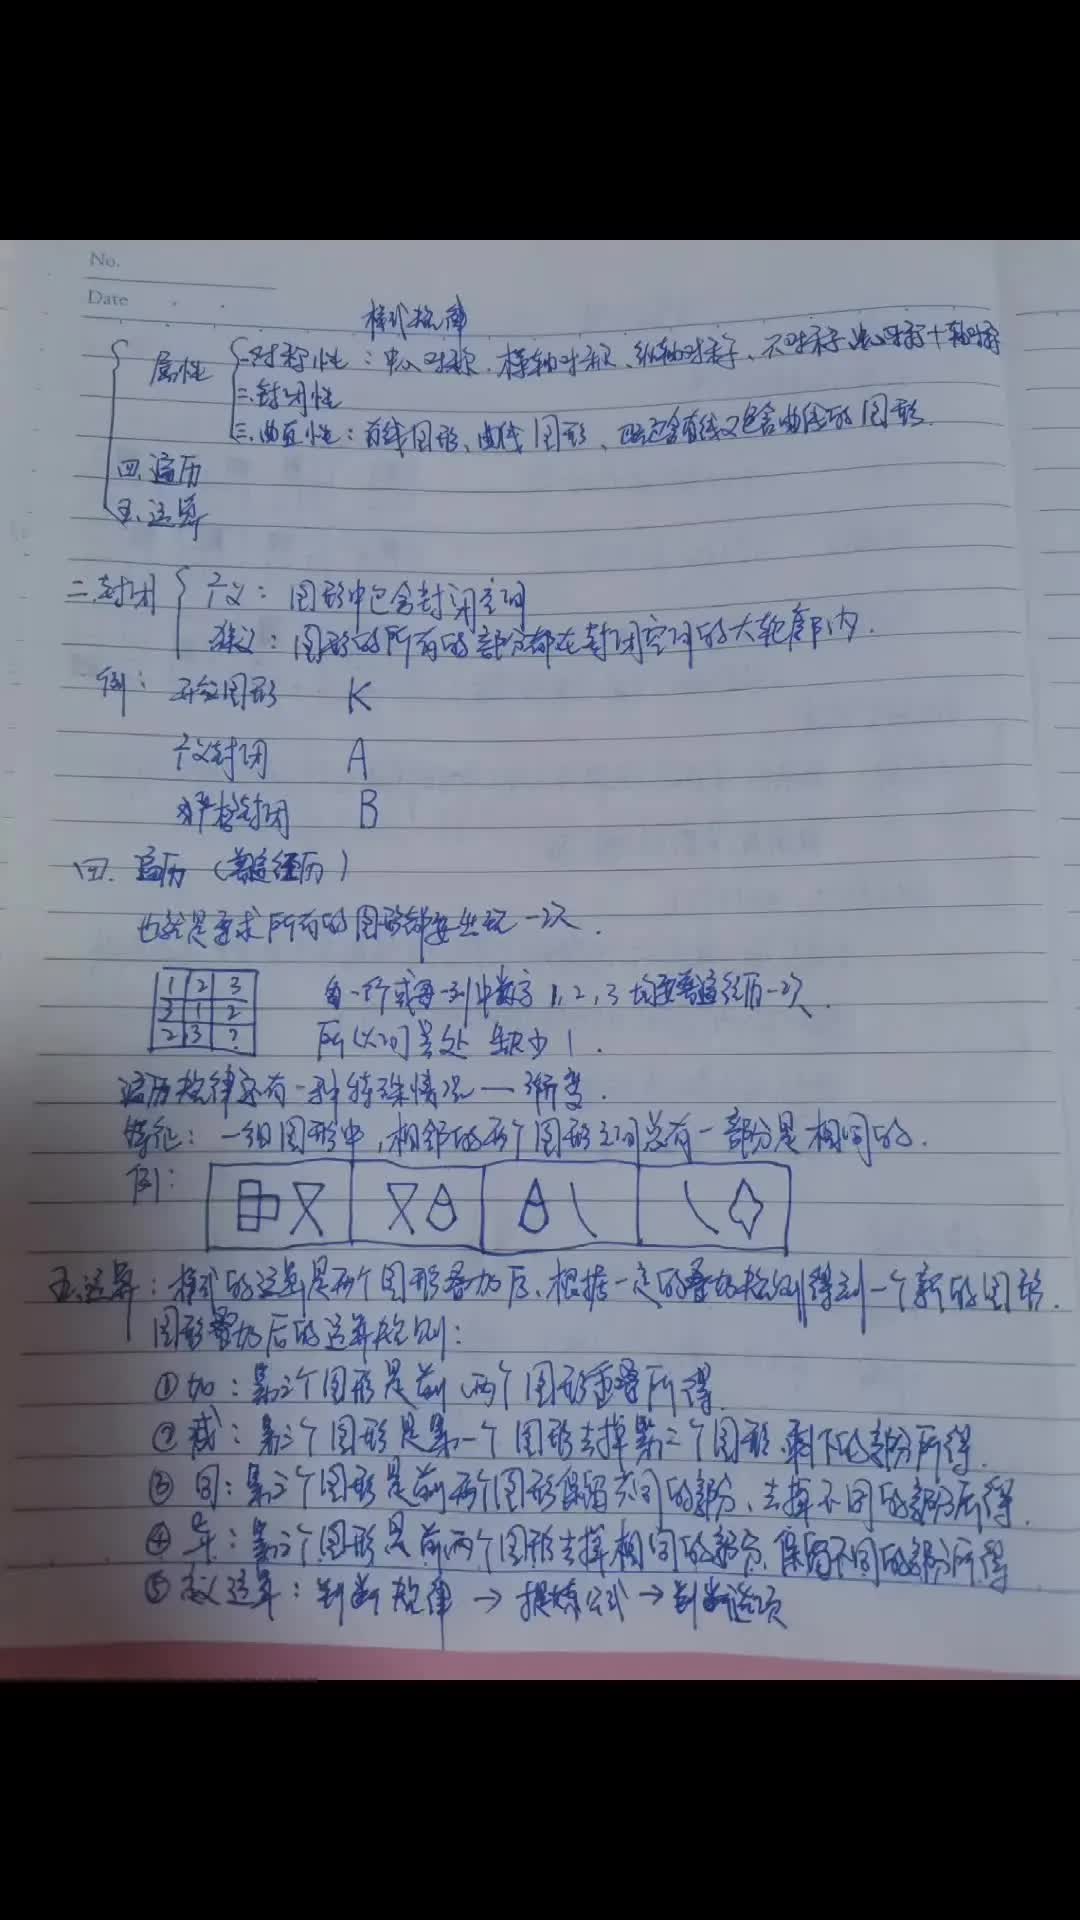 No.
Date
样式规律
属性
一.对称性：中心对称、横轴对称、纵轴对称、不对称、中心对称+轴对称
二.封闭性
三.曲直性：直线图形、曲线图形、既包含直线又包含曲线的图形.
四.遍历
五.运算
二.封闭
广义：图形中包含封闭空间
狭义：图形的所有的部分都在封闭空间的大轮廓内.
例：开放图形 K
广义封闭 A
严格封闭 B
四.遍历（普遍经历）
也就是要求所有的图形都要出现一次.
1 2 3
3 1 2
2 3 ?
每一行或每一列中数字1,2,3均要普遍经历一次.
所以问号处缺少1.
遍历规律还有一种特殊情况—渐变.
特征：一组图形中,相邻的两个图形之间总有一部分是相同的.
例：
五.运算：样式的运算是两个图形叠加后、根据一定的叠加规则得到一个新的图形.
图形叠加后的运算规则：
①加：第三个图形是前两个图形重叠所得.
②减：第三个图形是第一个图形去掉第二个图形,剩下的部分所得.
③同：第三个图形是前两个图形保留共同的部分、去掉不同的部分所得.
④异：第三个图形是前两个图形去掉相同的部分,保留不同的部分所得
⑤定义运算：判断规律→提炼公式→判断选项